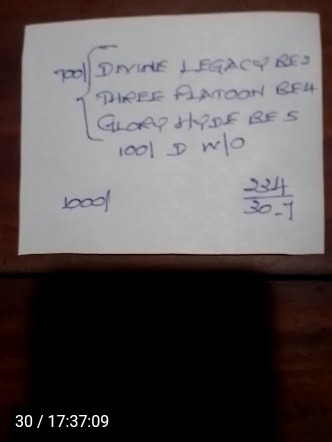 700/ DIVINE LEGACY BE2
THREE PLATOON BE4
GLORY HYDE BE5
100/ D W/O
1000/
224
30-7
30 / 17:37:09